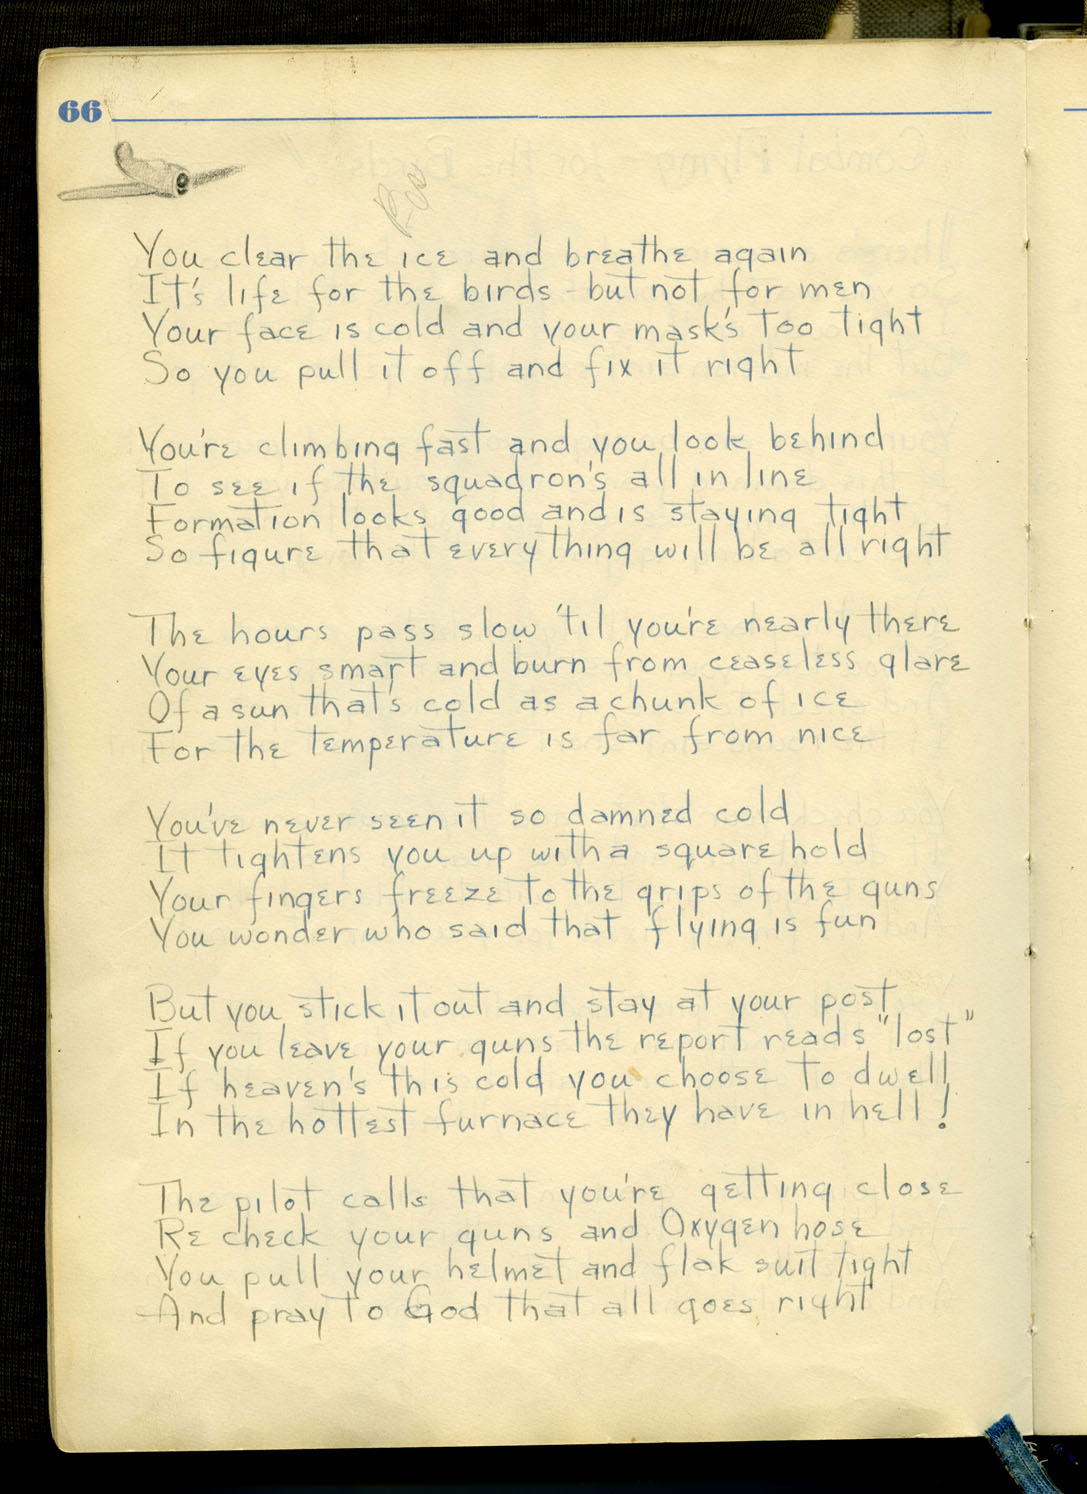 66
You clear the ice and breathe again
It's life for the birds - but not for men
Your face is cold and your mask's too tight
So you pull it off and fix it right
You're climbing fast and you look behind
To see if the squadron's all in line
Formation looks good and is staying tight
So figure that everything will be all right
The hours pass slow 'til you're nearly there
Your eyes smart and burn from ceaseless glare
Of a sun that's cold as a chunk of ice
For the temperature is far from nice
You've never seen it so damned cold
It tightens you up with a square hold
Your fingers freeze to the grips of the guns
You wonder who said that flying is fun
But you stick it out and stay at your post
If you leave your guns the report reads "lost"
If heaven's this cold you choose to dwell
In the hottest furnace they have in hell!
The pilot calls that you're getting close
Re check your guns and Oxygen hose
You pull your helmet and flak suit tight
And pray to God that all goes right